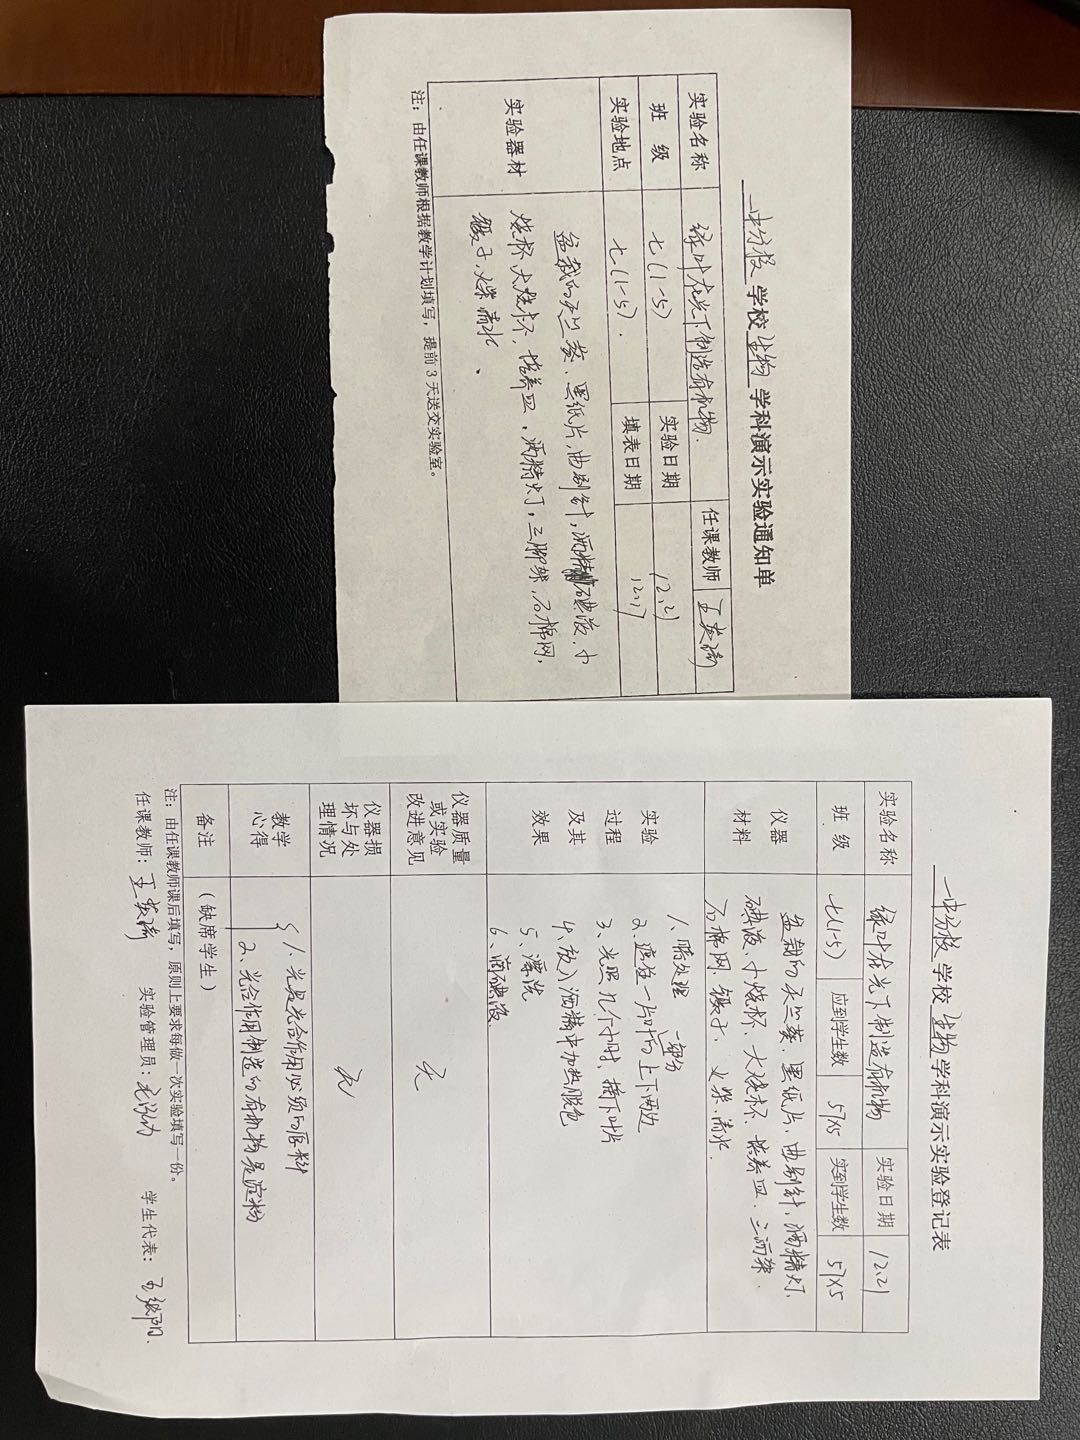 一中分校学校生物学科演示实验通知单
实验名称 绿叶在光下制造有机物. 任课教师 王英
班 级 七(1-5) 实验日期 12.21
实验地点 七(1-5). 填表日期 12.17
实验器材 盆栽的天竺葵、黑纸片,曲别针,酒精 碘液、小
烧杯、大烧杯,培养皿,酒精灯,三脚架、石棉网,
镊子,火柴,清水、
注:由任课教师根据教学计划填写,提前3天送交实验室。
一中分校学校生物学科演示实验登记表
实验名称 绿叶在光下制造有机物 实验日期 12.21
班 级 七(1-5) 应到学生数 57×5 实到学生数 57×5
仪器
材料
盆栽的天竺葵、黑纸片、曲别针,酒精灯,
碘液、小烧杯、大烧杯、培养皿、三角架、
石棉网、镊子、火柴、清水.
实验
过程
及其
效果
1、暗处理
2、遮住一片叶的一部分上下两边
3、光照几个小时、摘下叶片
4、放入酒精中加热脱色
5、漂洗
6、滴碘液
仪器质量
或实验
改进意见
无
仪器损
坏与处
理情况
无
教学
心得
1、光是光合作用必须的原料
2、光合作用制造的有机物是淀粉
备注 (缺席学生)
注:由任课教师课后填写,原则上要求每做一次实验填写一份。
任课教师:王英 实验管理员: 学生代表: